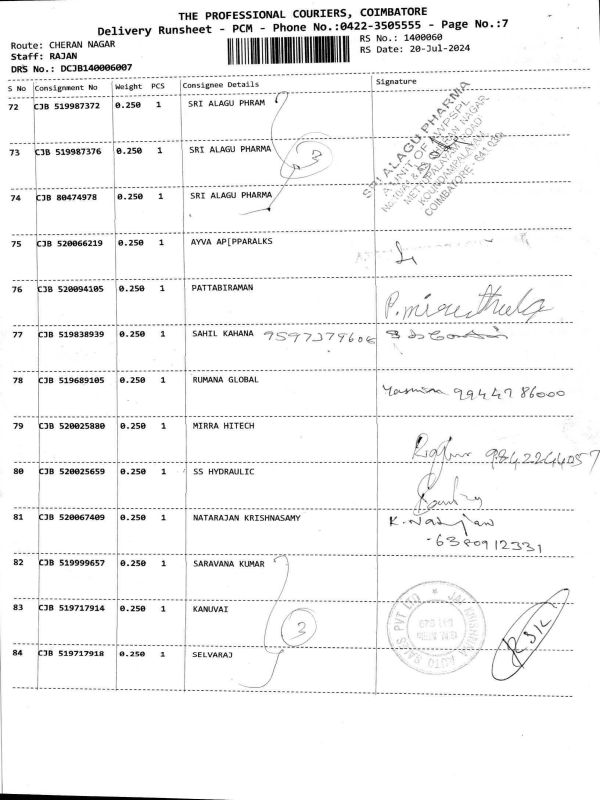 THE PROFESSIONAL COURIERS, COIMBATORE
Delivery Runsheet - PCM - Phone No.:0422-3505555 - Page No.:7
Route: CHERAN NAGAR RS No.: 1400060
Staff: RAJAN RS Date: 20-Jul-2024
DRS No.: DCJB140006007
S No Consignment No Weight PCS Consignee Details Signature
72 CJB 519987372 0.250 1 SRI ALAGU PHRAM
73 CJB 519987376 0.250 1 SRI ALAGU PHARMA
3
74 CJB 80474978 0.250 1 SRI ALAGU PHARMA
SRI ALAGU PHARMA
A UNIT OF
METTUPALAYAM ROAD
KOUNDAMPALAYAM
COIMBATORE - 641030
75 CJB 520066219 0.250 1 AYVA AP[PPARALKS
76 CJB 520094105 0.250 1 PATTABIRAMAN
77 CJB 519838939 0.250 1 SAHIL KAHANA 9597379606
78 CJB 519689105 0.250 1 RUMANA GLOBAL 9944786000
79 CJB 520025880 0.250 1 MIRRA HITECH 9842244057
80 CJB 520025659 0.250 1 SS HYDRAULIC
81 CJB 520067409 0.250 1 NATARAJAN KRISHNASAMY K. Natarjan
-6380912331
82 CJB 519999657 0.250 1 SARAVANA KUMAR
83 CJB 519717914 0.250 1 KANUVAI
3
84 CJB 519717918 0.250 1 SELVARAJ
JAI KRISHNAA AUTO SALES PVT LTD